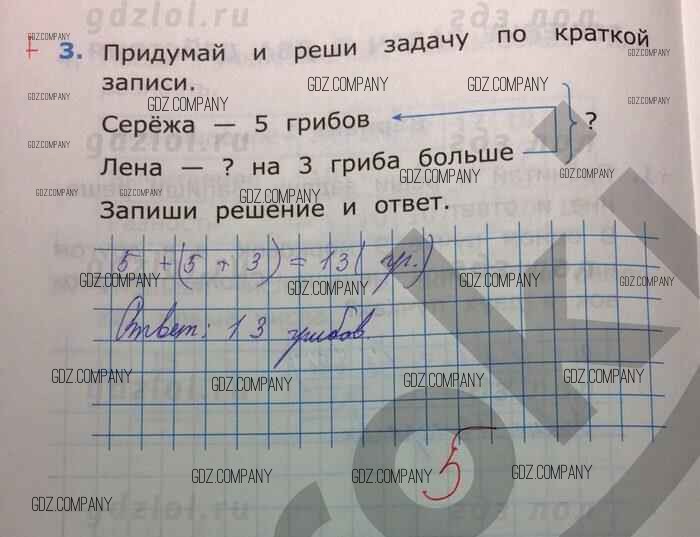 gdzlol.ru гдз.рф
3. Придумай и реши задачу по краткой
записи.
GDZ.COMPANY GDZ.COMPANY GDZ.COMPANY GDZ.COMPANY
Серёжа — 5 грибов ?
Лена — ? на 3 гриба больше
Запиши решение и ответ.
5 + (5 + 3) = 13 (гр.)
GDZ.COMPANY GDZ.COMPANY GDZ.COMPANY GDZ.COMPANY
Ответ: 13 грибов.
GDZ.COMPANY GDZ.COMPANY GDZ.COMPANY GDZ.COMPANY
5
GDZ.COMPANY GDZ.COMPANY GDZ.COMPANY
GDZ.COMPANY
gdzlol.ru